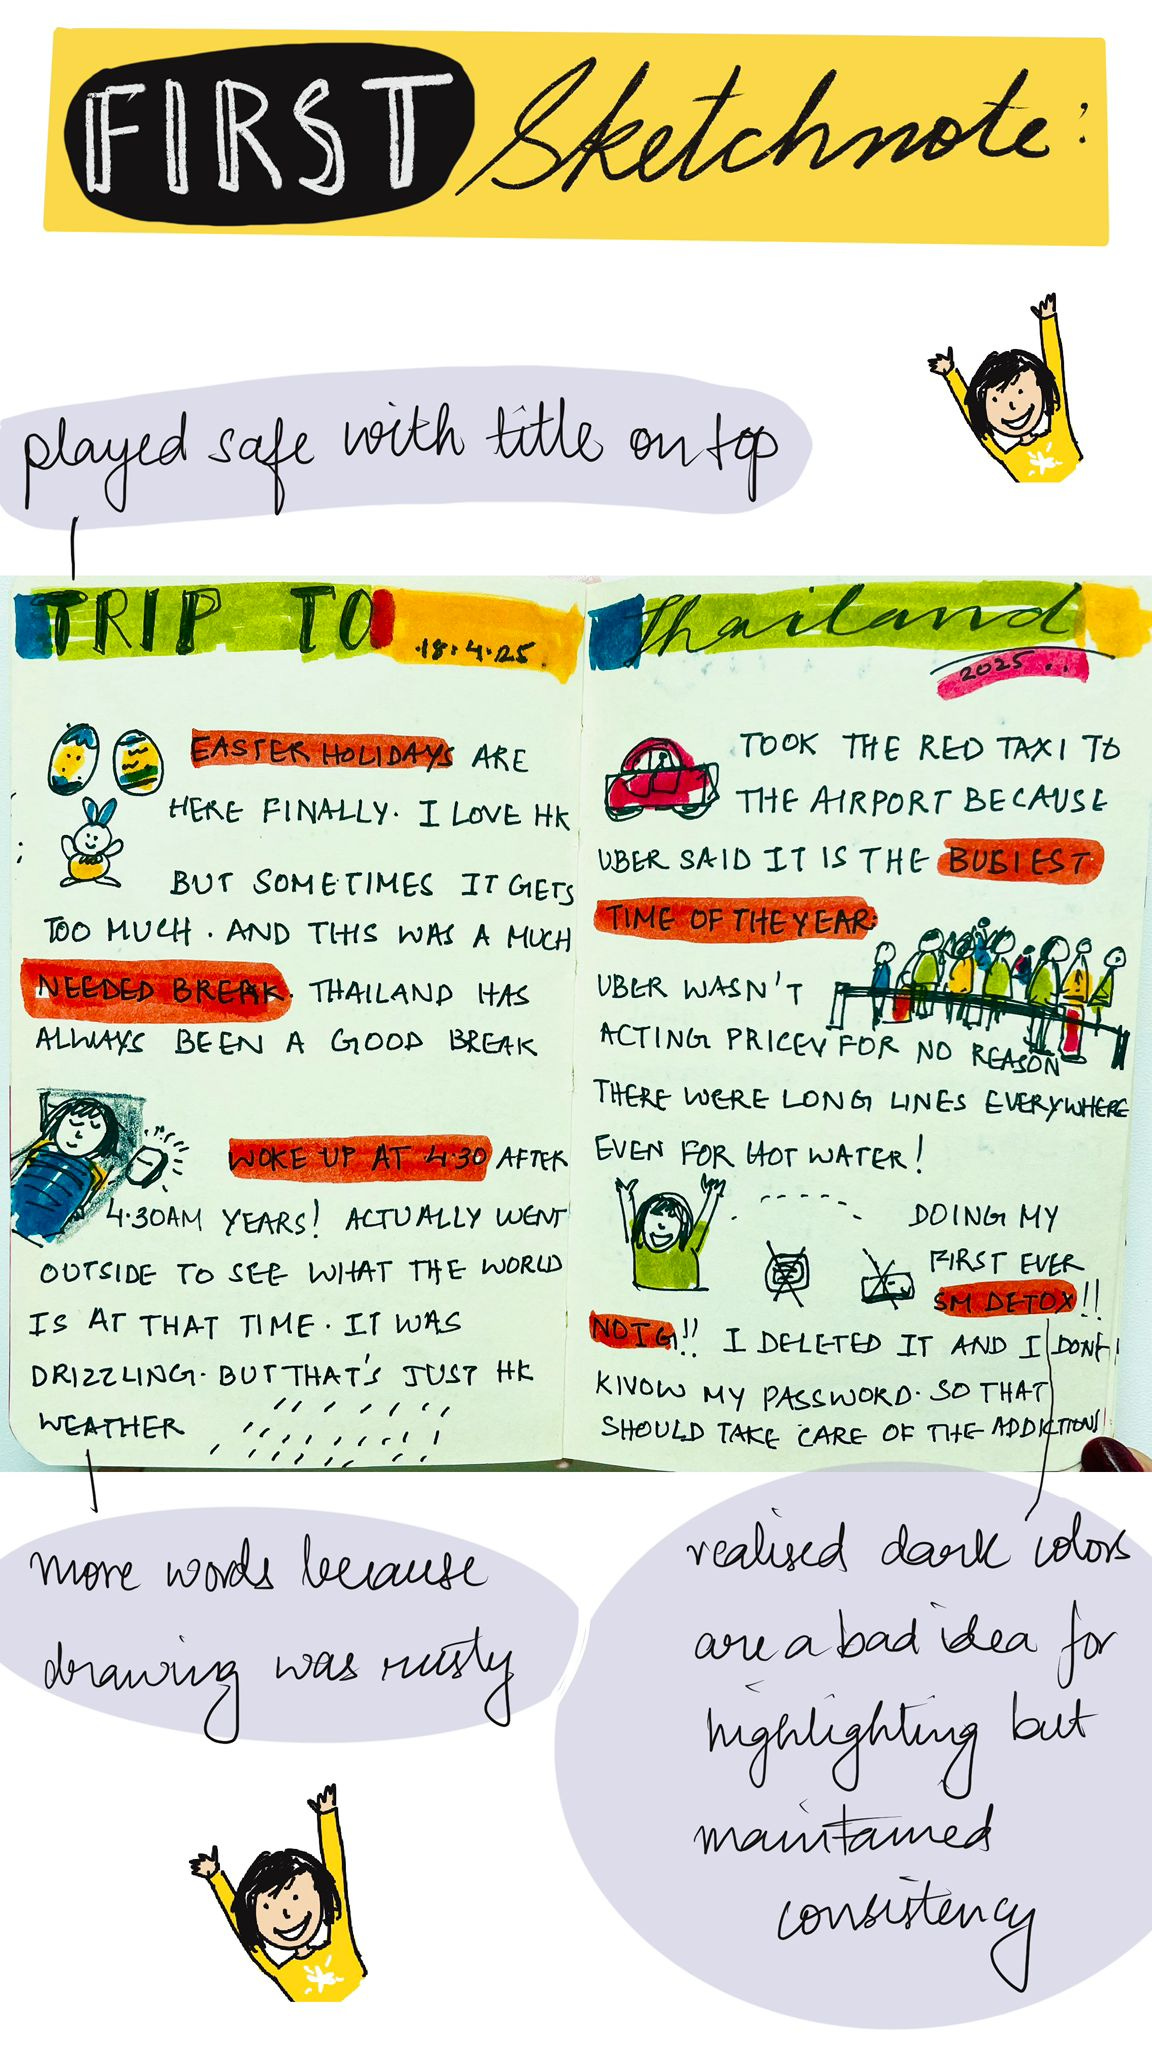 FIRST Sketchnote:
played safe with title on top
TRIP TO
18.4.25
EASTER HOLIDAYS ARE
HERE FINALLY. I LOVE HK
BUT SOMETIMES IT GETS
TOO MUCH. AND THIS WAS A MUCH
NEEDED BREAK. THAILAND HAS
ALWAYS BEEN A GOOD BREAK
WOKE UP AT 4.30 AFTER
4.30AM YEARS! ACTUALLY WENT
OUTSIDE TO SEE WHAT THE WORLD
IS AT THAT TIME. IT WAS
DRIZZLING. BUT THAT'S JUST HK
WEATHER
Thailand
2025..
TOOK THE RED TAXI TO
THE AIRPORT BECAUSE
UBER SAID IT IS THE BUSIEST
TIME OF THE YEAR.
UBER WASN'T
ACTING PRICEY FOR NO REASON
THERE WERE LONG LINES EVERYWHERE
EVEN FOR HOT WATER!
DOING MY
FIRST EVER
SM DETOX!!
NO IG!! I DELETED IT AND I DONT
KNOW MY PASSWORD. SO THAT
SHOULD TAKE CARE OF THE ADDICTION!
more words because
drawing was rusty
realised dark colors
are a bad idea for
highlighting but
maintained
consistency